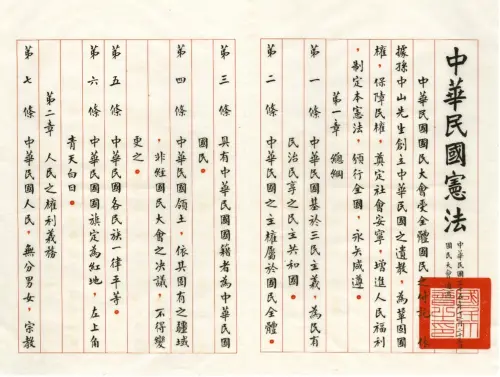 中華民國憲法
中華民國
國民大會
中華民國國民大會受全體國民之付託，依
據孫中山先生創立中華民國之遺教，為鞏固國
權，保障民權，奠定社會安寧，增進人民福利
，制定本憲法，頒行全國，永矢咸遵。
第一章　總綱
第一條　中華民國基於三民主義，為民有
民治民享之民主共和國。
第二條　中華民國之主權屬於國民全體。
第三條　具有中華民國國籍者為中華民國
國民。
第四條　中華民國領土，依其固有之疆域
，非經國民大會之决議，不得變
更之。
第五條　中華民國各民族一律平等。
第六條　中華民國國旗定為紅地，左上角
青天白日。
第二章　人民之權利義務
第七條　中華民國人民，無分男女，宗教